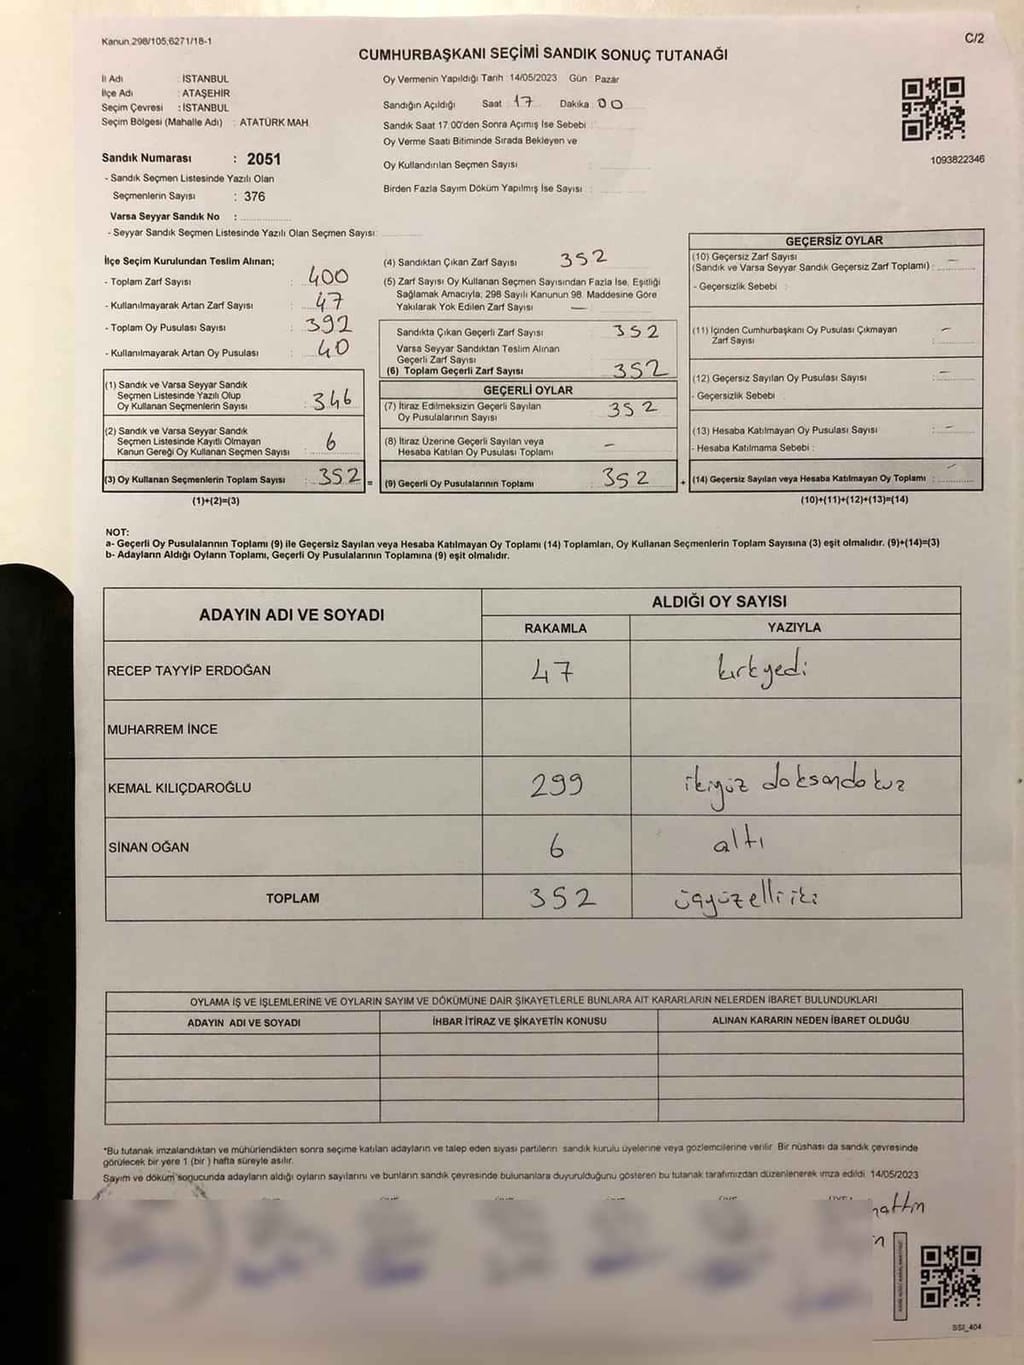 Kanun 298/105,6271/18-1
C/2
CUMHURBAŞKANI SEÇİMİ SANDIK SONUÇ TUTANAĞI
İl Adı : İSTANBUL
İlçe Adı : ATAŞEHİR
Seçim Çevresi : İSTANBUL
Seçim Bölgesi (Mahalle Adı) : ATATÜRK MAH
Sandık Numarası : 2051
- Sandık Seçmen Listesinde Yazılı Olan
Seçmenlerin Sayısı : 376
Varsa Seyyar Sandık No :
- Seyyar Sandık Seçmen Listesinde Yazılı Olan Seçmen Sayısı:
Oy Vermenin Yapıldığı Tarih : 14/05/2023 Gün : Pazar
Sandığın Açıldığı Saat 17 Dakika 00
Sandık Saat 17.00'den Sonra Açımış İse Sebebi :
Oy Verme Saati Bitiminde Sırada Bekleyen ve
Oy Kullandırılan Seçmen Sayısı :
Birden Fazla Sayım Döküm Yapılmış İse Sayısı :
1093822346
İlçe Seçim Kurulundan Teslim Alınan;
- Toplam Zarf Sayısı : 400
- Kullanılmayarak Artan Zarf Sayısı : 47
- Toplam Oy Pusulası Sayısı : 392
- Kullanılmayarak Artan Oy Pusulası : 40
(1) Sandık ve Varsa Seyyar Sandık
Seçmen Listesinde Yazılı Olup
Oy Kullanan Seçmenlerin Sayısı : 346
(2) Sandık ve Varsa Seyyar Sandık
Seçmen Listesinde Kayıtlı Olmayan
Kanun Gereği Oy Kullanan Seçmen Sayısı : 6
(3) Oy Kullanan Seçmenlerin Toplam Sayısı : 352 =
(1)+(2)=(3)
(4) Sandıktan Çıkan Zarf Sayısı : 352
(5) Zarf Sayısı Oy Kullanan Seçmen Sayısından Fazla İse, Eşitliği
Sağlamak Amacıyla, 298 Sayılı Kanunun 98. Maddesine Göre
Yakılarak Yok Edilen Zarf Sayısı : —
Sandıkta Çıkan Geçerli Zarf Sayısı : 352
Varsa Seyyar Sandıktan Teslim Alınan
Geçerli Zarf Sayısı
(6) Toplam Geçerli Zarf Sayısı : 352
GEÇERLİ OYLAR
(7) İtiraz Edilmeksizin Geçerli Sayılan
Oy Pusulalarının Sayısı : 352
(8) İtiraz Üzerine Geçerli Sayılan veya
Hesaba Katılan Oy Pusulası Toplamı : —
(9) Geçerli Oy Pusulalarının Toplamı : 352 +
GEÇERSİZ OYLAR
(10) Geçersiz Zarf Sayısı
(Sandık ve Varsa Seyyar Sandık Geçersiz Zarf Toplamı) : —
- Geçersizlik Sebebi :
(11) İçinden Cumhurbaşkanı Oy Pusulası Çıkmayan
Zarf Sayısı : —
(12) Geçersiz Sayılan Oy Pusulası Sayısı : —
- Geçersizlik Sebebi :
(13) Hesaba Katılmayan Oy Pusulası Sayısı : —
- Hesaba Katılmama Sebebi :
(14) Geçersiz Sayılan veya Hesaba Katılmayan Oy Toplamı : —
(10)+(11)+(12)+(13)=(14)
NOT:
a- Geçerli Oy Pusulalarının Toplamı (9) ile Geçersiz Sayılan veya Hesaba Katılmayan Oy Toplamı (14) Toplamları, Oy Kullanan Seçmenlerin Toplam Sayısına (3) eşit olmalıdır. (9)+(14)=(3)
b- Adayların Aldığı Oyların Toplamı, Geçerli Oy Pusulalarının Toplamına (9) eşit olmalıdır.
ADAYIN ADI VE SOYADI
ALDIĞI OY SAYISI
RAKAMLA YAZIYLA
RECEP TAYYİP ERDOĞAN 47 kırkyedi
MUHARREM İNCE
KEMAL KILIÇDAROĞLU 299 ikiyüz doksandokuz
SİNAN OĞAN 6 altı
TOPLAM 352 üçyüzelliiki
OYLAMA İŞ VE İŞLEMLERİNE VE OYLARIN SAYIM VE DÖKÜMÜNE DAİR ŞİKAYETLERLE BUNLARA AİT KARARLARIN NELERDEN İBARET BULUNDUKLARI
ADAYIN ADI VE SOYADI İHBAR İTİRAZ VE ŞİKAYETİN KONUSU ALINAN KARARIN NEDEN İBARET OLDUĞU
*Bu tutanak imzalandıktan ve mühürlendikten sonra seçime katılan adayların ve talep eden siyasi partilerin sandık kurulu üyelerine veya gözlemcilerine verilir. Bir nüshası da sandık çevresinde
görülecek bir yere 1 (bir ) hafta süreyle asılır.
Sayım ve döküm sonucunda adayların aldığı oyların sayılarını ve bunların sandık çevresinde bulunanlara duyurulduğunu gösteren bu tutanak tarafımızdan düzenlenerek imza edildi. 14/05/2023
SSI_404